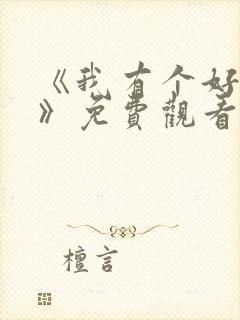 《我有个好
》免費觀看
檀言